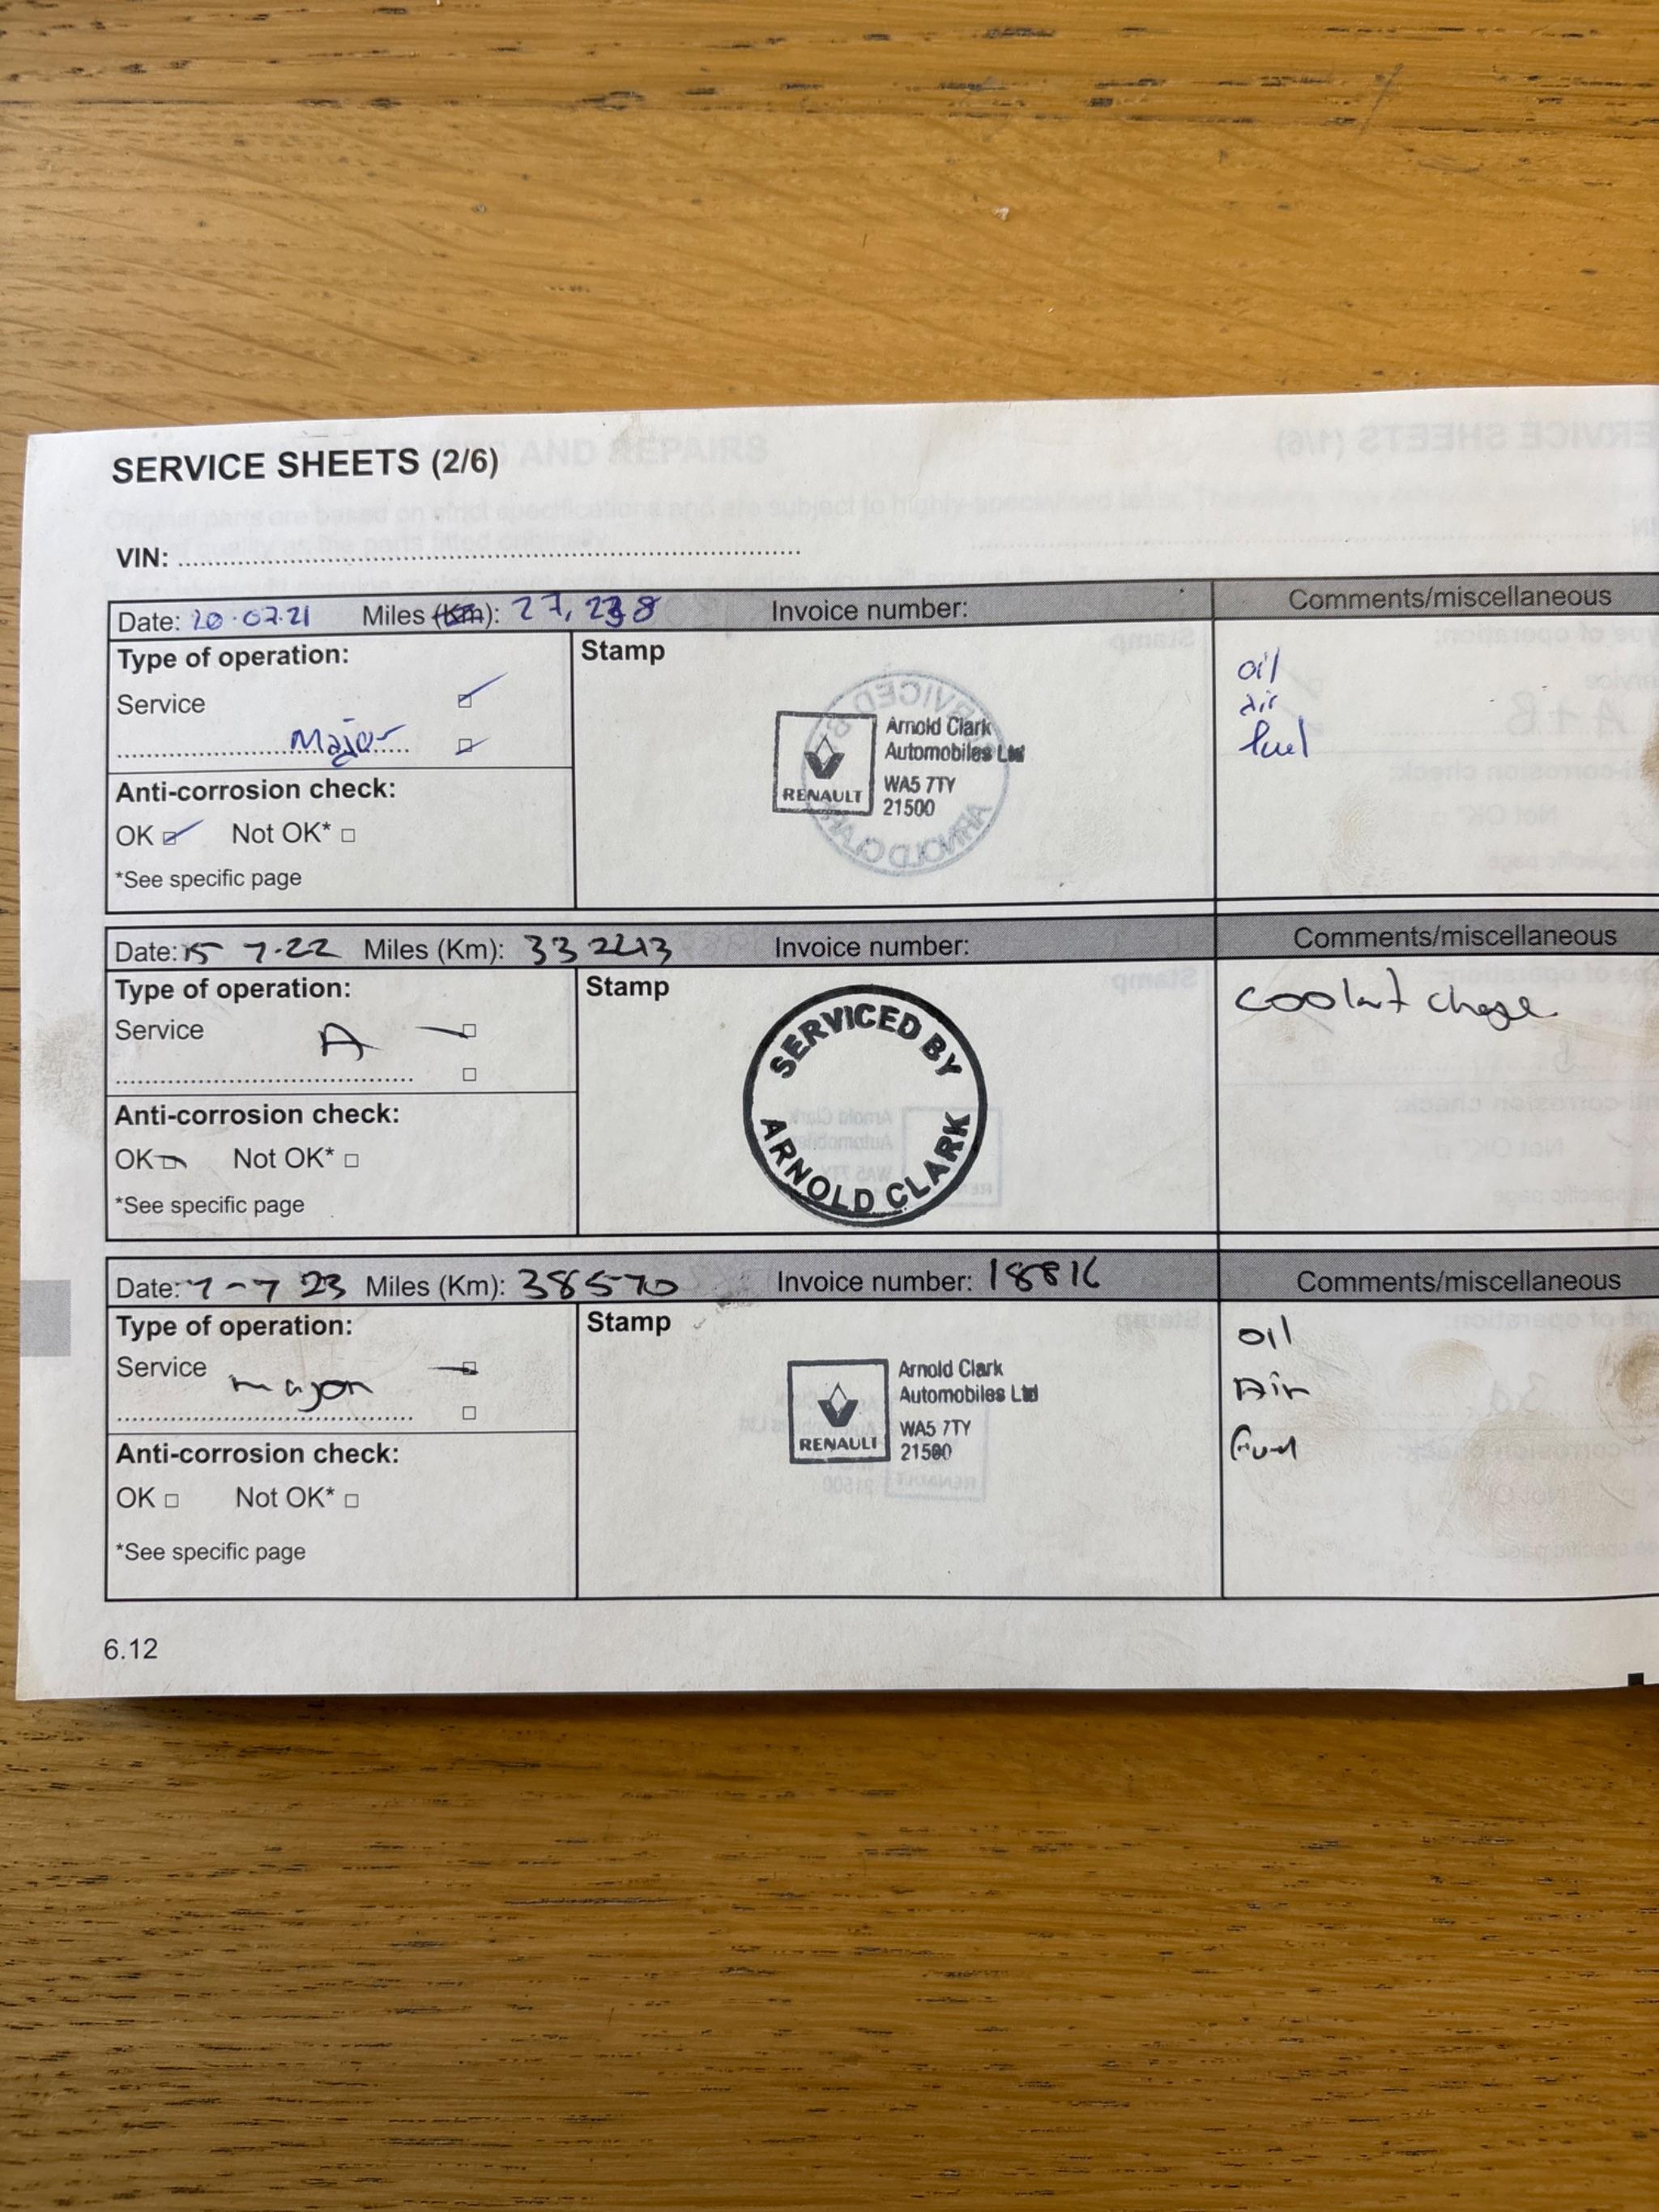 SERVICE SHEETS (2/6)
VIN:
Date: 20.07.21 Miles (Km): 27,238 Invoice number: Comments/miscellaneous
Type of operation: Stamp
Service
Major
oil
air
fuel
RENAULT
Arnold Clark
Automobiles Ltd
WA5 7TY
21500
Anti-corrosion check:
OK Not OK*
*See specific page
Date: 15 7.22 Miles (Km): 33243 Invoice number: Comments/miscellaneous
Type of operation: Stamp
Service A
coolant change
SERVICED BY
ARNOLD CLARK
Anti-corrosion check:
OK Not OK*
*See specific page
Date: 7-7 23 Miles (Km): 38570 Invoice number: 18816 Comments/miscellaneous
Type of operation: Stamp
Service major
oil
Air
Fuel
RENAULT
Arnold Clark
Automobiles Ltd
WA5 7TY
21500
Anti-corrosion check:
OK Not OK*
*See specific page
6.12